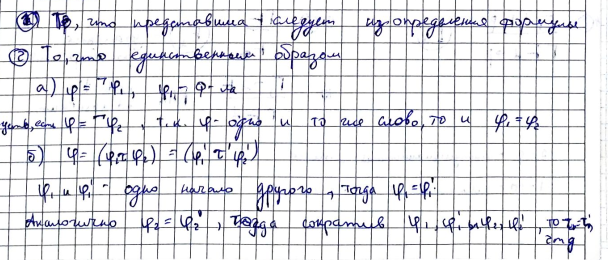 ① То, что представима - следует из определения формулы
② То, что единственным образом
а) φ = ¬φ₁, φ₁ - ф-ла
пусть, если φ = ¬φ₂, т.к. φ - одно и то же слово, то и φ₁ = φ₂
б) φ = (φ₁ τ φ₂) = (φ₁' τ' φ₂')
φ₁ и φ₁' - одно начало другого, тогда φ₁ = φ₁'
Аналогично φ₂ = φ₂', тогда сократив φ₁, φ₁' и φ₂, φ₂', то τ = τ'
чтд